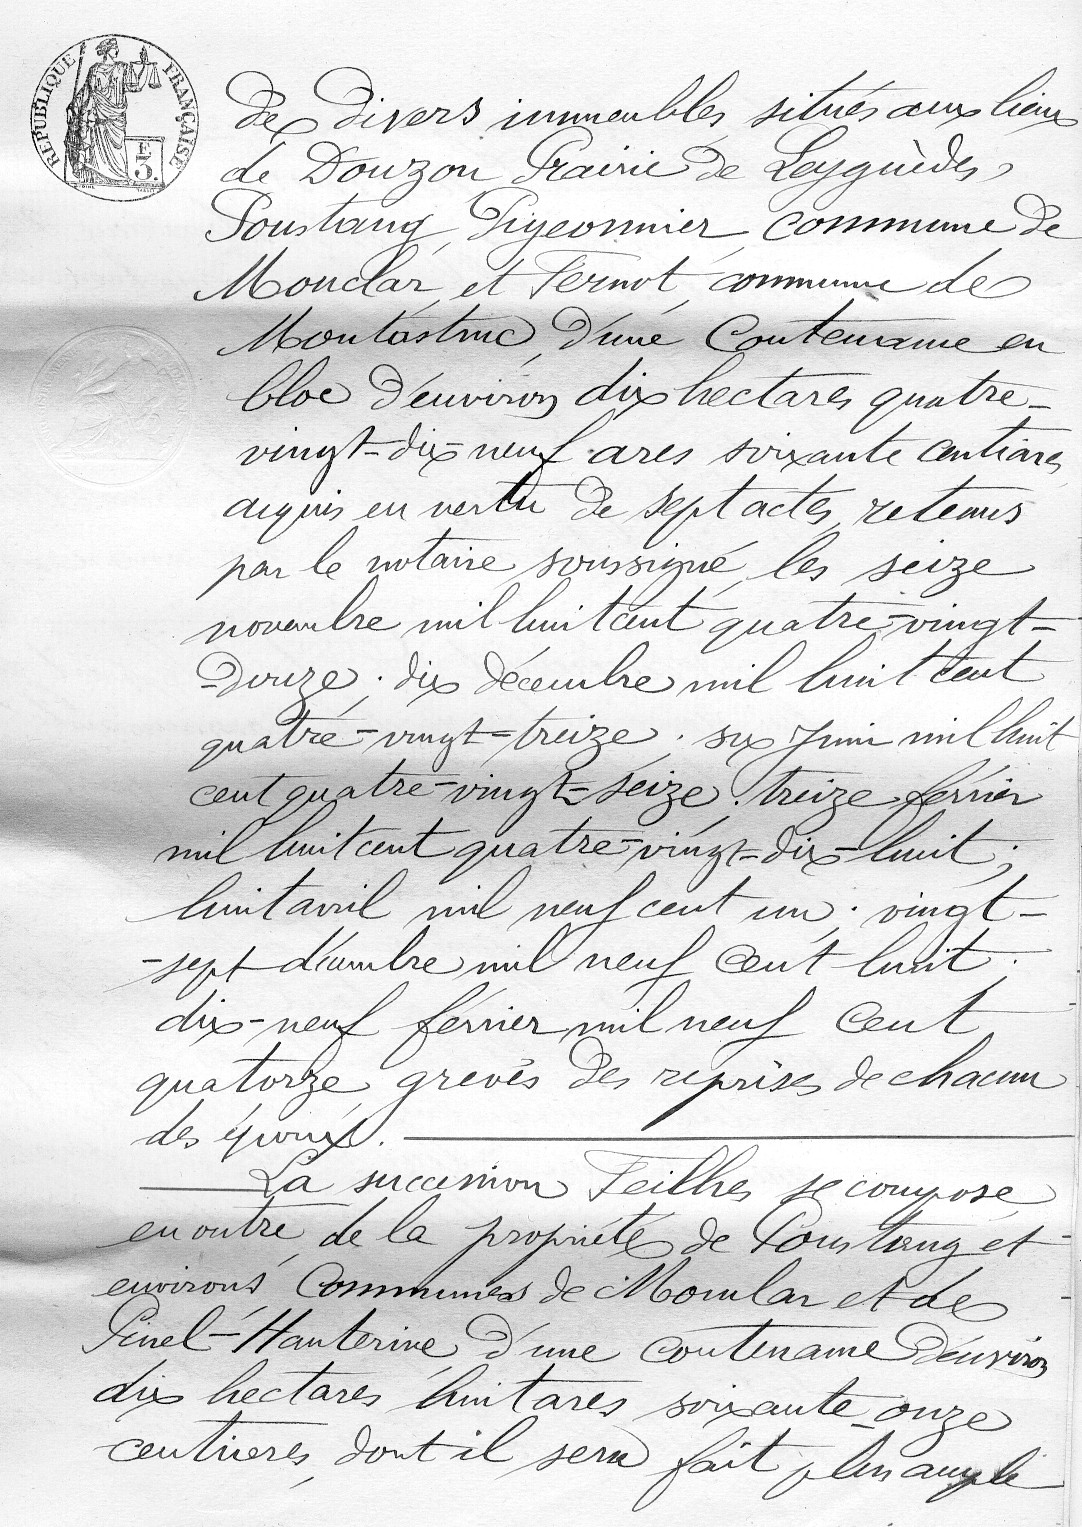 RÉPUBLIQUE FRANÇAISE
F
3.
de divers immeubles, situés aux lieux
de Douzon Prairie de Leyguèdes,
Poustang, Pigeonnier, commune de
Monclar, et Fernot, commune de
Montastruc, d'une Contenance en
bloc d'environ dix hectares quatre-
vingt-dix-neuf ares soixante centiares
acquis en vertu de sept actes, retenus
par le notaire soussigné, les seize
novembre mil huit cent quatre-vingt-
-douze; dix décembre mil huit cent
quatre-vingt-treize; six Juin mil huit
cent quatre-vingt-seize; treize février
mil huit cent quatre-vingt-dix-huit;
huit avril mil neuf cent un; vingt-
-sept décembre mil neuf cent huit;
dix-neuf février mil neuf cent
quatorze, grevés des reprises de chacun
des époux.
La succession Feilhes se compose,
en outre, de la propriété de Poustang et
environs Communes de Monclar et de
Pinel-Hauterive, d'une contenance d'environ
dix hectares huit ares soixante-onze
centiares, dont il sera fait plus ample